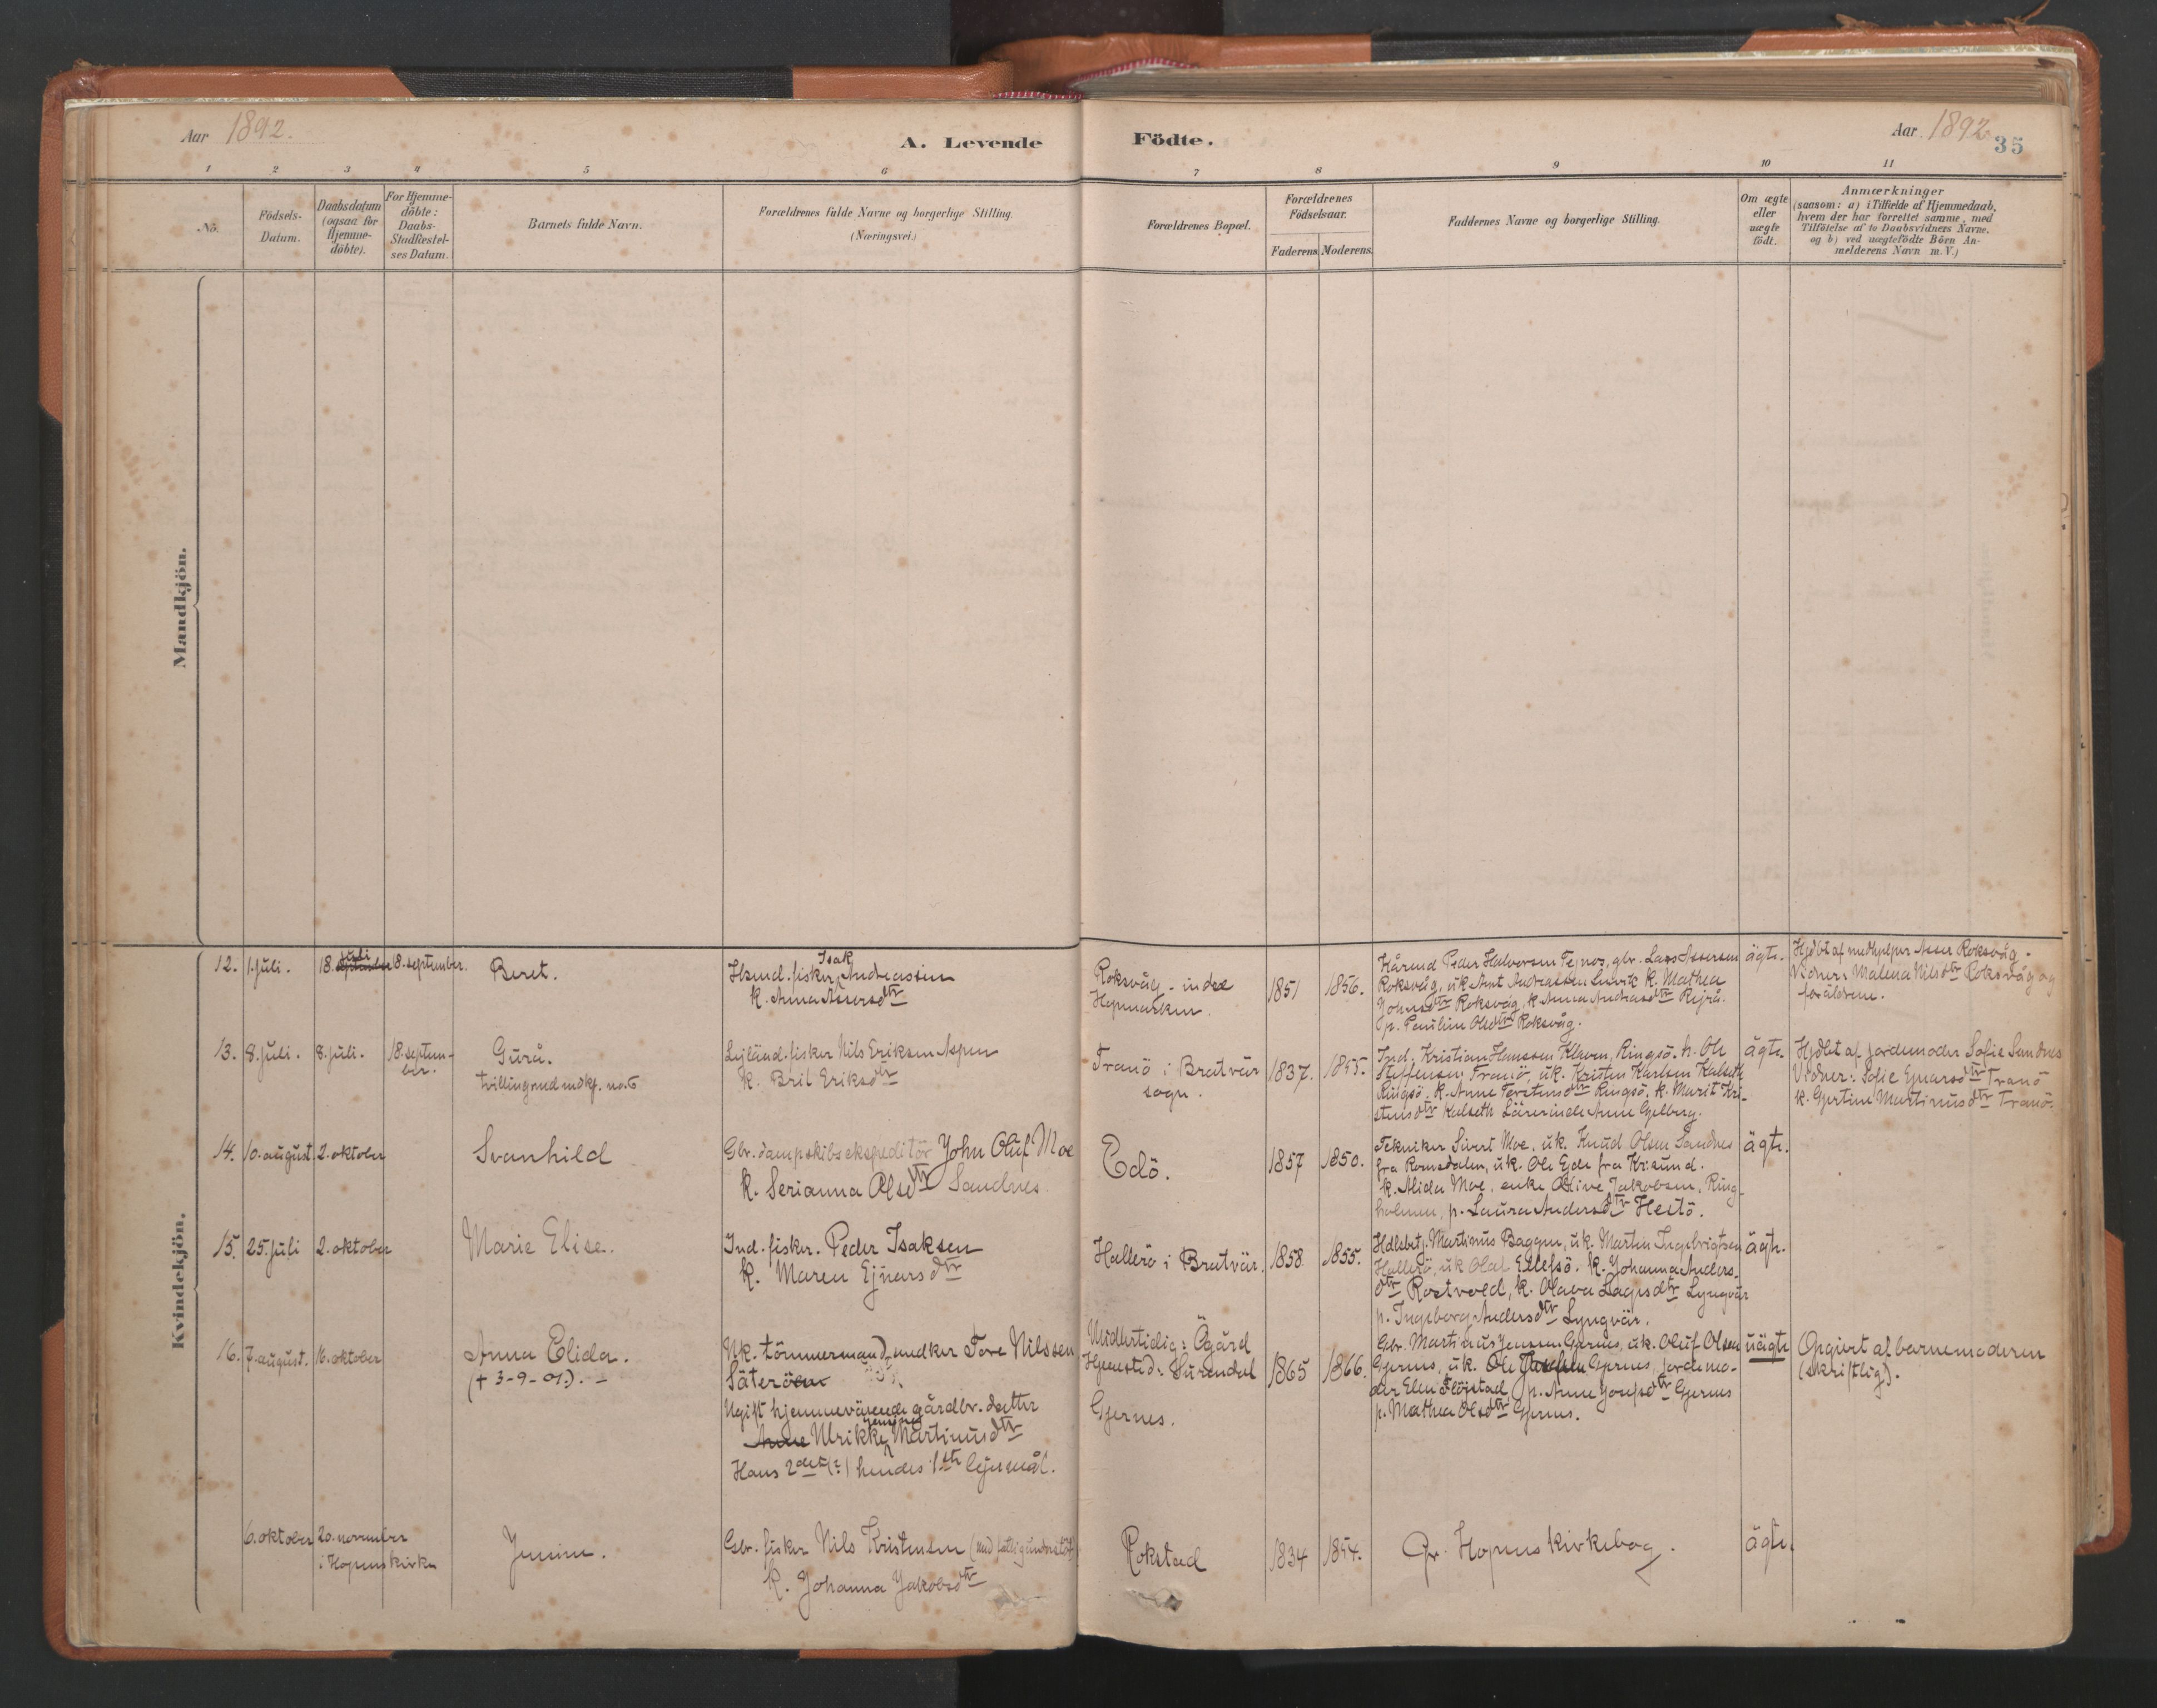 Aar 1892.
A. Levende
Födte.
Aar 1892
35
1 2 3 4 5 6 7 8 9 10 11
No.
Födsels-
Datum.
Daabsdatum
(ogsaa for
Hjemme-
döbte).
For Hjemme-
döbte:
Daabs-
Stadfæstel-
ses Datum.
Barnets fulde Navn.
Forældrenes fulde Navne og borgerlige Stilling.
(Næringsvei.)
Forældrenes Bopæl.
Forældrenes
Födselsaar.
Faderens. Moderens.
Faddernes Navne og borgerlige Stilling.
Om ægte
eller
uægte
födt.
Anmærkninger
(saasom: a) i Tilfælde af Hjemmedaab,
hvem der har forrettet samme, med
Tilföielse af to Daabsvidners Navne,
og b) ved uægtefödte Börn An-
melderens Navn m. V.)
Mandkjön.
Kvindekjön.
12. 1. juli.
juli
18. september 18. september.
Beret.
Isak
Hsmd. fisker Andreassen
k. Anna Assersdtr
Roksvåg - indre
Hopmarken.
1851 1856.
Kårmd Peder Halvorsen Tejnes, gbr. Lars Assersen
Roksvåg, uk Arnt Andreassen Leirvik k. Mathea
Johnsdtr Roksvåg, k Anna Andreasdtr Rejrå.
p. Pauline Olsdtr Roksvåg.
ägte.
Hjdbt af medhjelper Asser Roksvåg.
Vidner: Malena Nilsdtr Roksvåg og
foräldrene.
13. 8. juli. 8. juli. 18. septem-
ber.
Gurå.
tvilling med mdkj. no. 6
Lejländ. fisker Nils Eriksen Aspen
k. Brit Eriksdtr
Tranö i Bratvär
sogn.
1837. 1845.
Ind. Kristian Hanssen Klaven, Ringsö. h. Ole
Steffensen Tranö, uk. Kristen Karlsen Kalseth
Ringsö. k. Anne Torstensdtr Ringsö. k. Marit Kri-
stensdtr Kalseth Lärerinde Anne Gjelberg.
ägte.
Hjdbt af jordemoder Sofie Sandnes
Vidner: Sofie Ejnarsdtr Tranö
k. Gjertine Martinusdtr Tranö.
14. 10. august 2. oktober
Svanhild
Gbr. dampskibsekspeditör John Oluf Moe
k. Serianna Olsdtr Sandnes.
Edö.
1857 1850.
Tekniker Sivert Moe, uk. Knud Olsen Sandnes
fra Romsdalen, uk. Ole Ejde fra Krisund.
k. Alida Moe, enke Oline Jakobsen, Ring-
holmen, p. Laura Andersdtr Hestö.
ägte.
15. 25. juli 2. oktober
Marie Elise.
Ind. fisker. Peder Isaksen
k. Maren Ejnarsdtr
Hallerö i Bratvär.
1858. 1855.
Hdlsbetj. Martinus Baggen, uk. Martin Ingebrigtsen
Hallerö, uk Olaf Ellefsö. k. Johanna Anders-
dtr Rostvold, k. Olava Lagesdtr Lyngvär
p. Ingeborg Andersdtr Lyngvär.
ägte.
16. 7. august. 16. oktober
Anna Elida.
(+ 3-9-01). -
Uk. tömmermand, snedker Tore Nilssen
Säteröen
Ugift hjemmevärende gårdbr. datter
Anne Ulrikke Jensine Martinusdtr
Hans 2det (?) hendes 1ste lejermål.
Midlertidig: Ögård
Hjemsted: Surendal
Gjernes.
1865 1866.
Gbr. Martinus Jenssen Gjernes, uk. Oluf Olsen
Gjernes, uk. Ole Gjernes, jordemo-
der Elen Flöjstad, p. Anne Josefsdtr Gjernes
p. Mathea Olsdtr Gjernes.
uägte
Opgivet af barnemoderen
(skriftlig).
6. oktober 20. november
i Hopens kirke
Jensine.
Gbr. fisker Nils Kristensen (med fattigunderstöt)
k. Johanna Jakobsdtr
Rokstad
1834 1854.
Gr. Hopens kirkebog.
ägte.